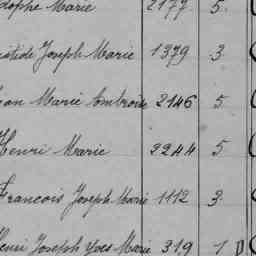 dophe Marie 2177 5.
istide Joseph Marie 1379 3
ean Marie Ambroise 2146 5
Henri Marie 2244 5
Francois Joseph Marie 1112 3.
Henri Joseph Yves Marie 319 1